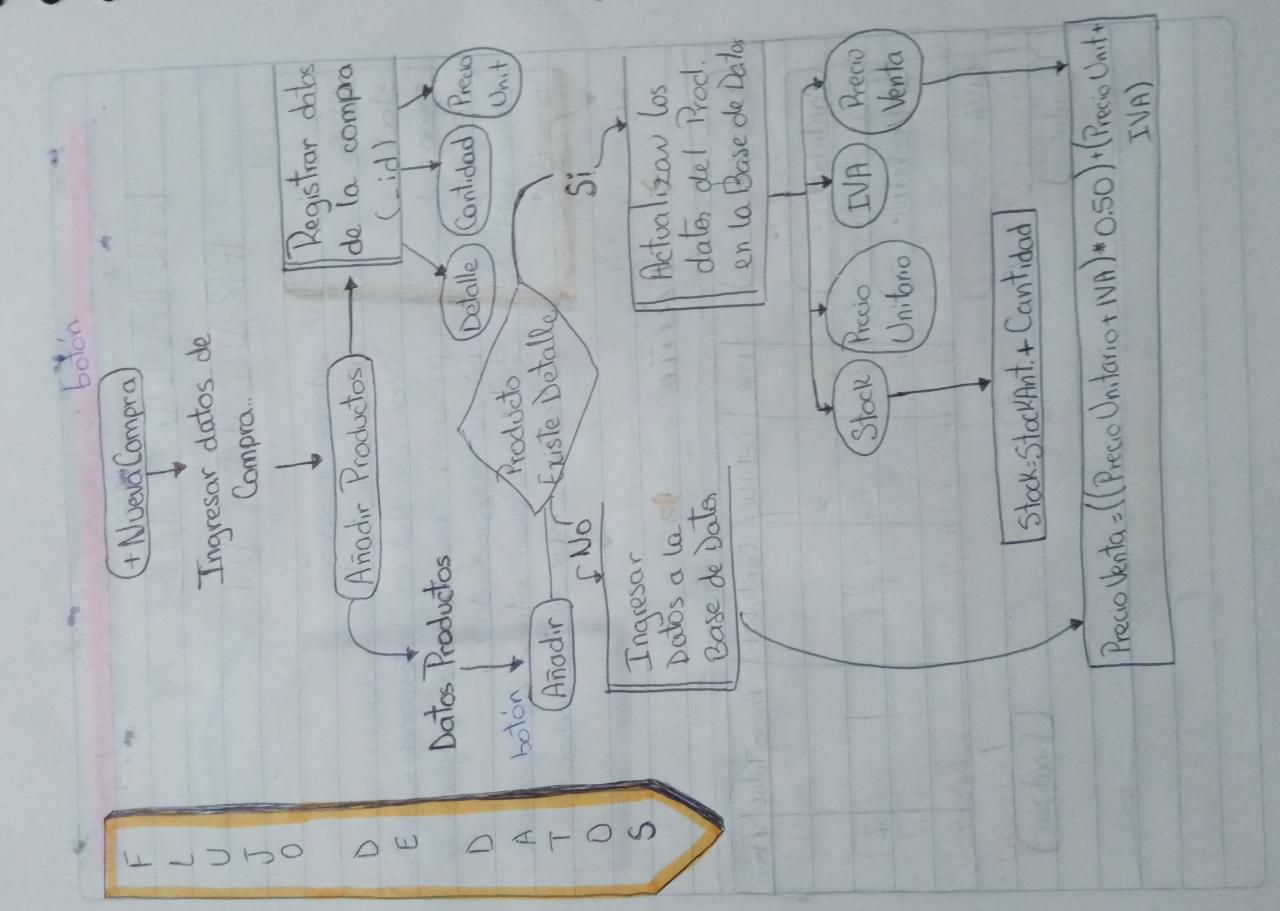 FLUJO DE DATOS
botón
+ Nueva Compra
Ingresar datos de
Compra..
Añadir Productos
Registrar datos
de la compra
(_id)
Detalle
Cantidad
Precio
Unit
Datos Productos
botón
Añadir
Producto
Existe Detalle
No
Si
Ingresar
Datos a la
Base de Datos
Actualizar los
datos del Prod.
en la Base de Datos
Stock
Precio
Unitario
IVA
Precio
Venta
Stock=StockAnt.+Cantidad
Precio Venta=((Precio Unitario+IVA)*0.50)+(Precio Unit+
IVA)